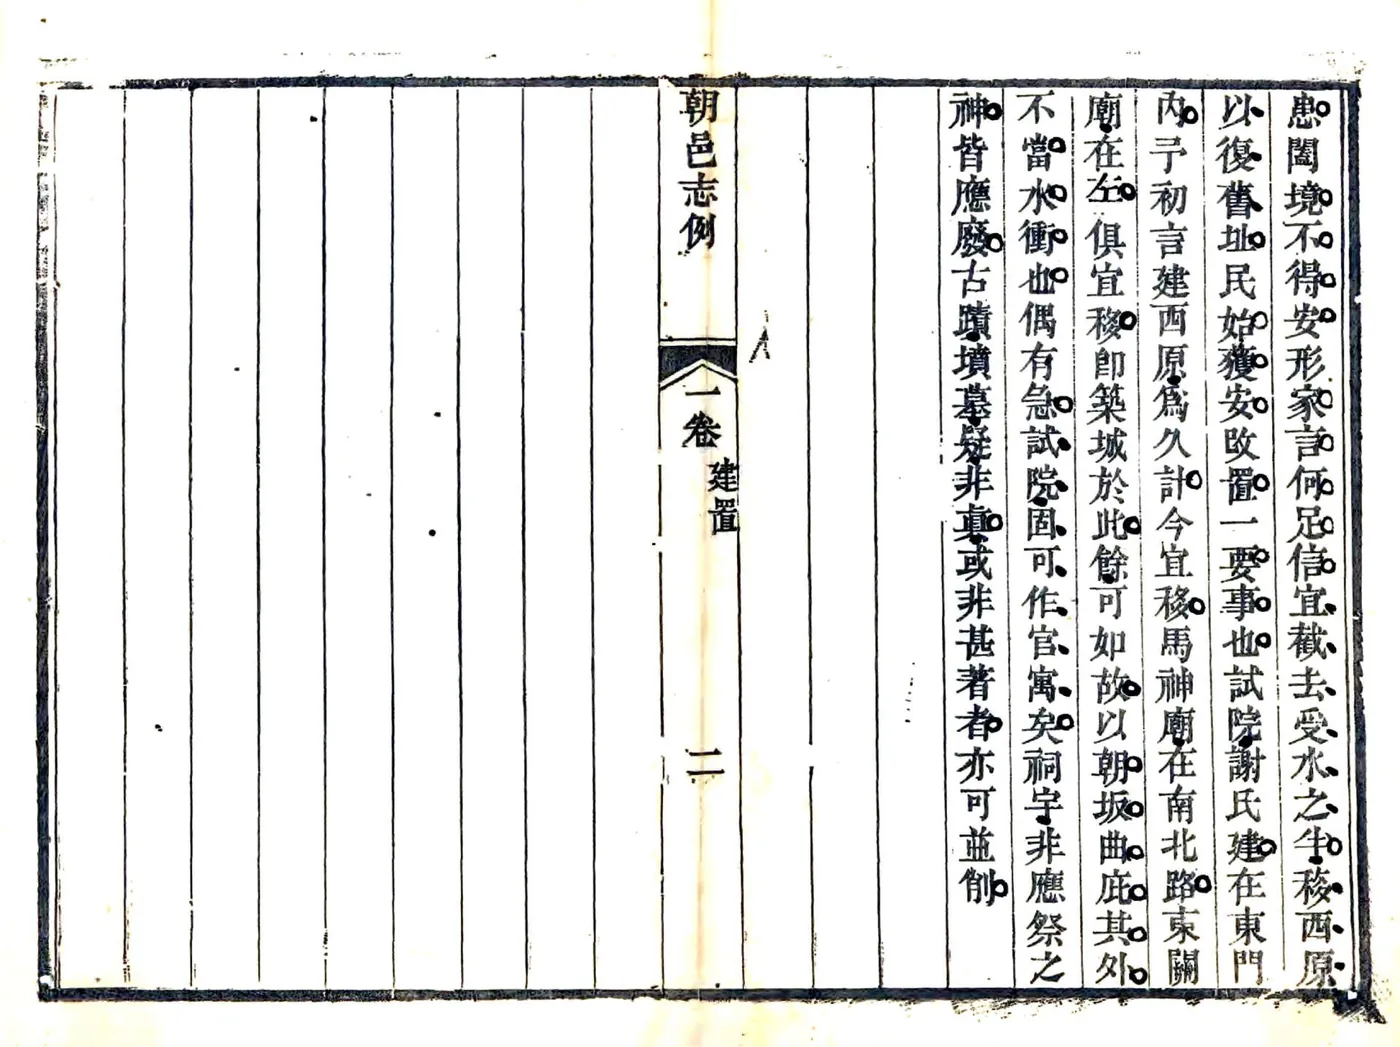 患闔境不得安形家言何足信宜截去受水之半移西原
以復舊址民始獲安改置一要事也試院謝氏建在東門
內予初言建西原爲久計今宜移馬神廟在南北路東關
廟在左俱宜移卽築城於此餘可如故以朝坂曲庇其外
不當水衝也偶有急試院固可作官寓矣祠宇非應祭之
神皆應廢古蹟墳墓疑非眞或非甚著者亦可並削
朝邑志例
一卷
建置
二